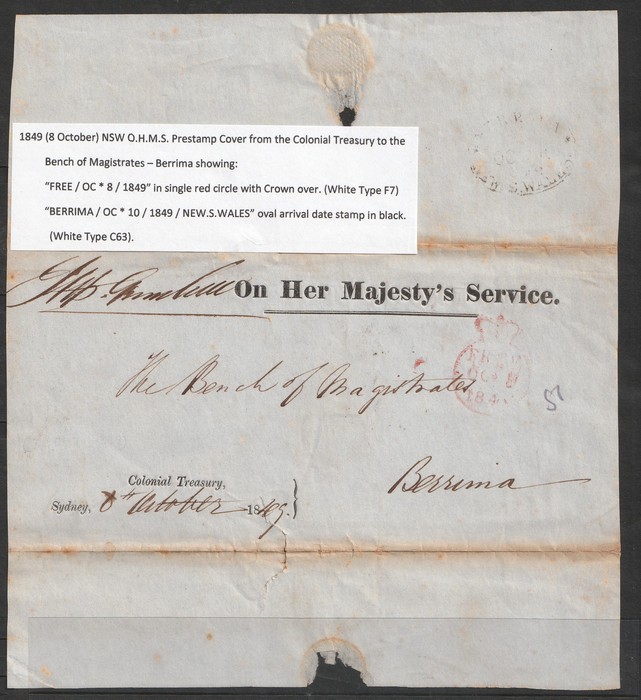 1849 (8 October) NSW O.H.M.S. Prestamp Cover from the Colonial Treasury to the
Bench of Magistrates – Berrima showing:
"FREE / OC * 8 / 1849" in single red circle with Crown over. (White Type F7)
"BERRIMA / OC * 10 / 1849 / NEW.S.WALES" oval arrival date stamp in black.
(White Type C63).
On Her Majesty's Service.
FREE
OC 8
184
The Bench of Magistrates
51
Berrima
Colonial Treasury,
Sydney, 8th October 1849.